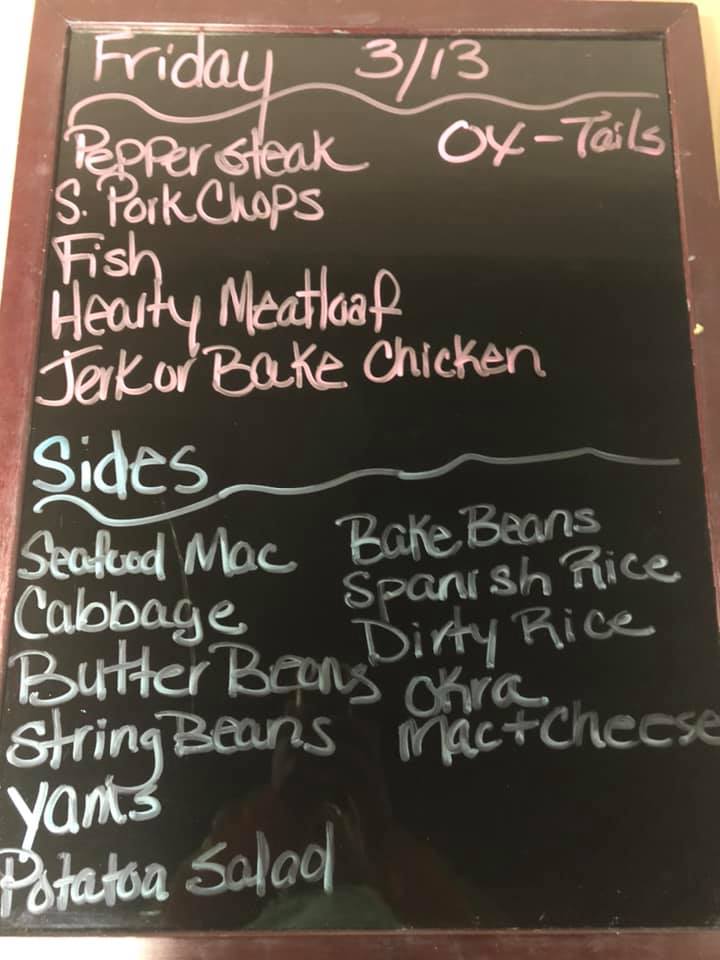 Friday 3/13
Pepper steak
Ox-Tails
S. Pork Chops
Fish
Hearty Meatloaf
Jerk or Bake Chicken
Sides
Seafood Mac
Cabbage
Butter Beans
String Beans
Yams
Potatoa Salad
Bake Beans
Spanish Rice
Dirty Rice
Okra
Mac+Cheese